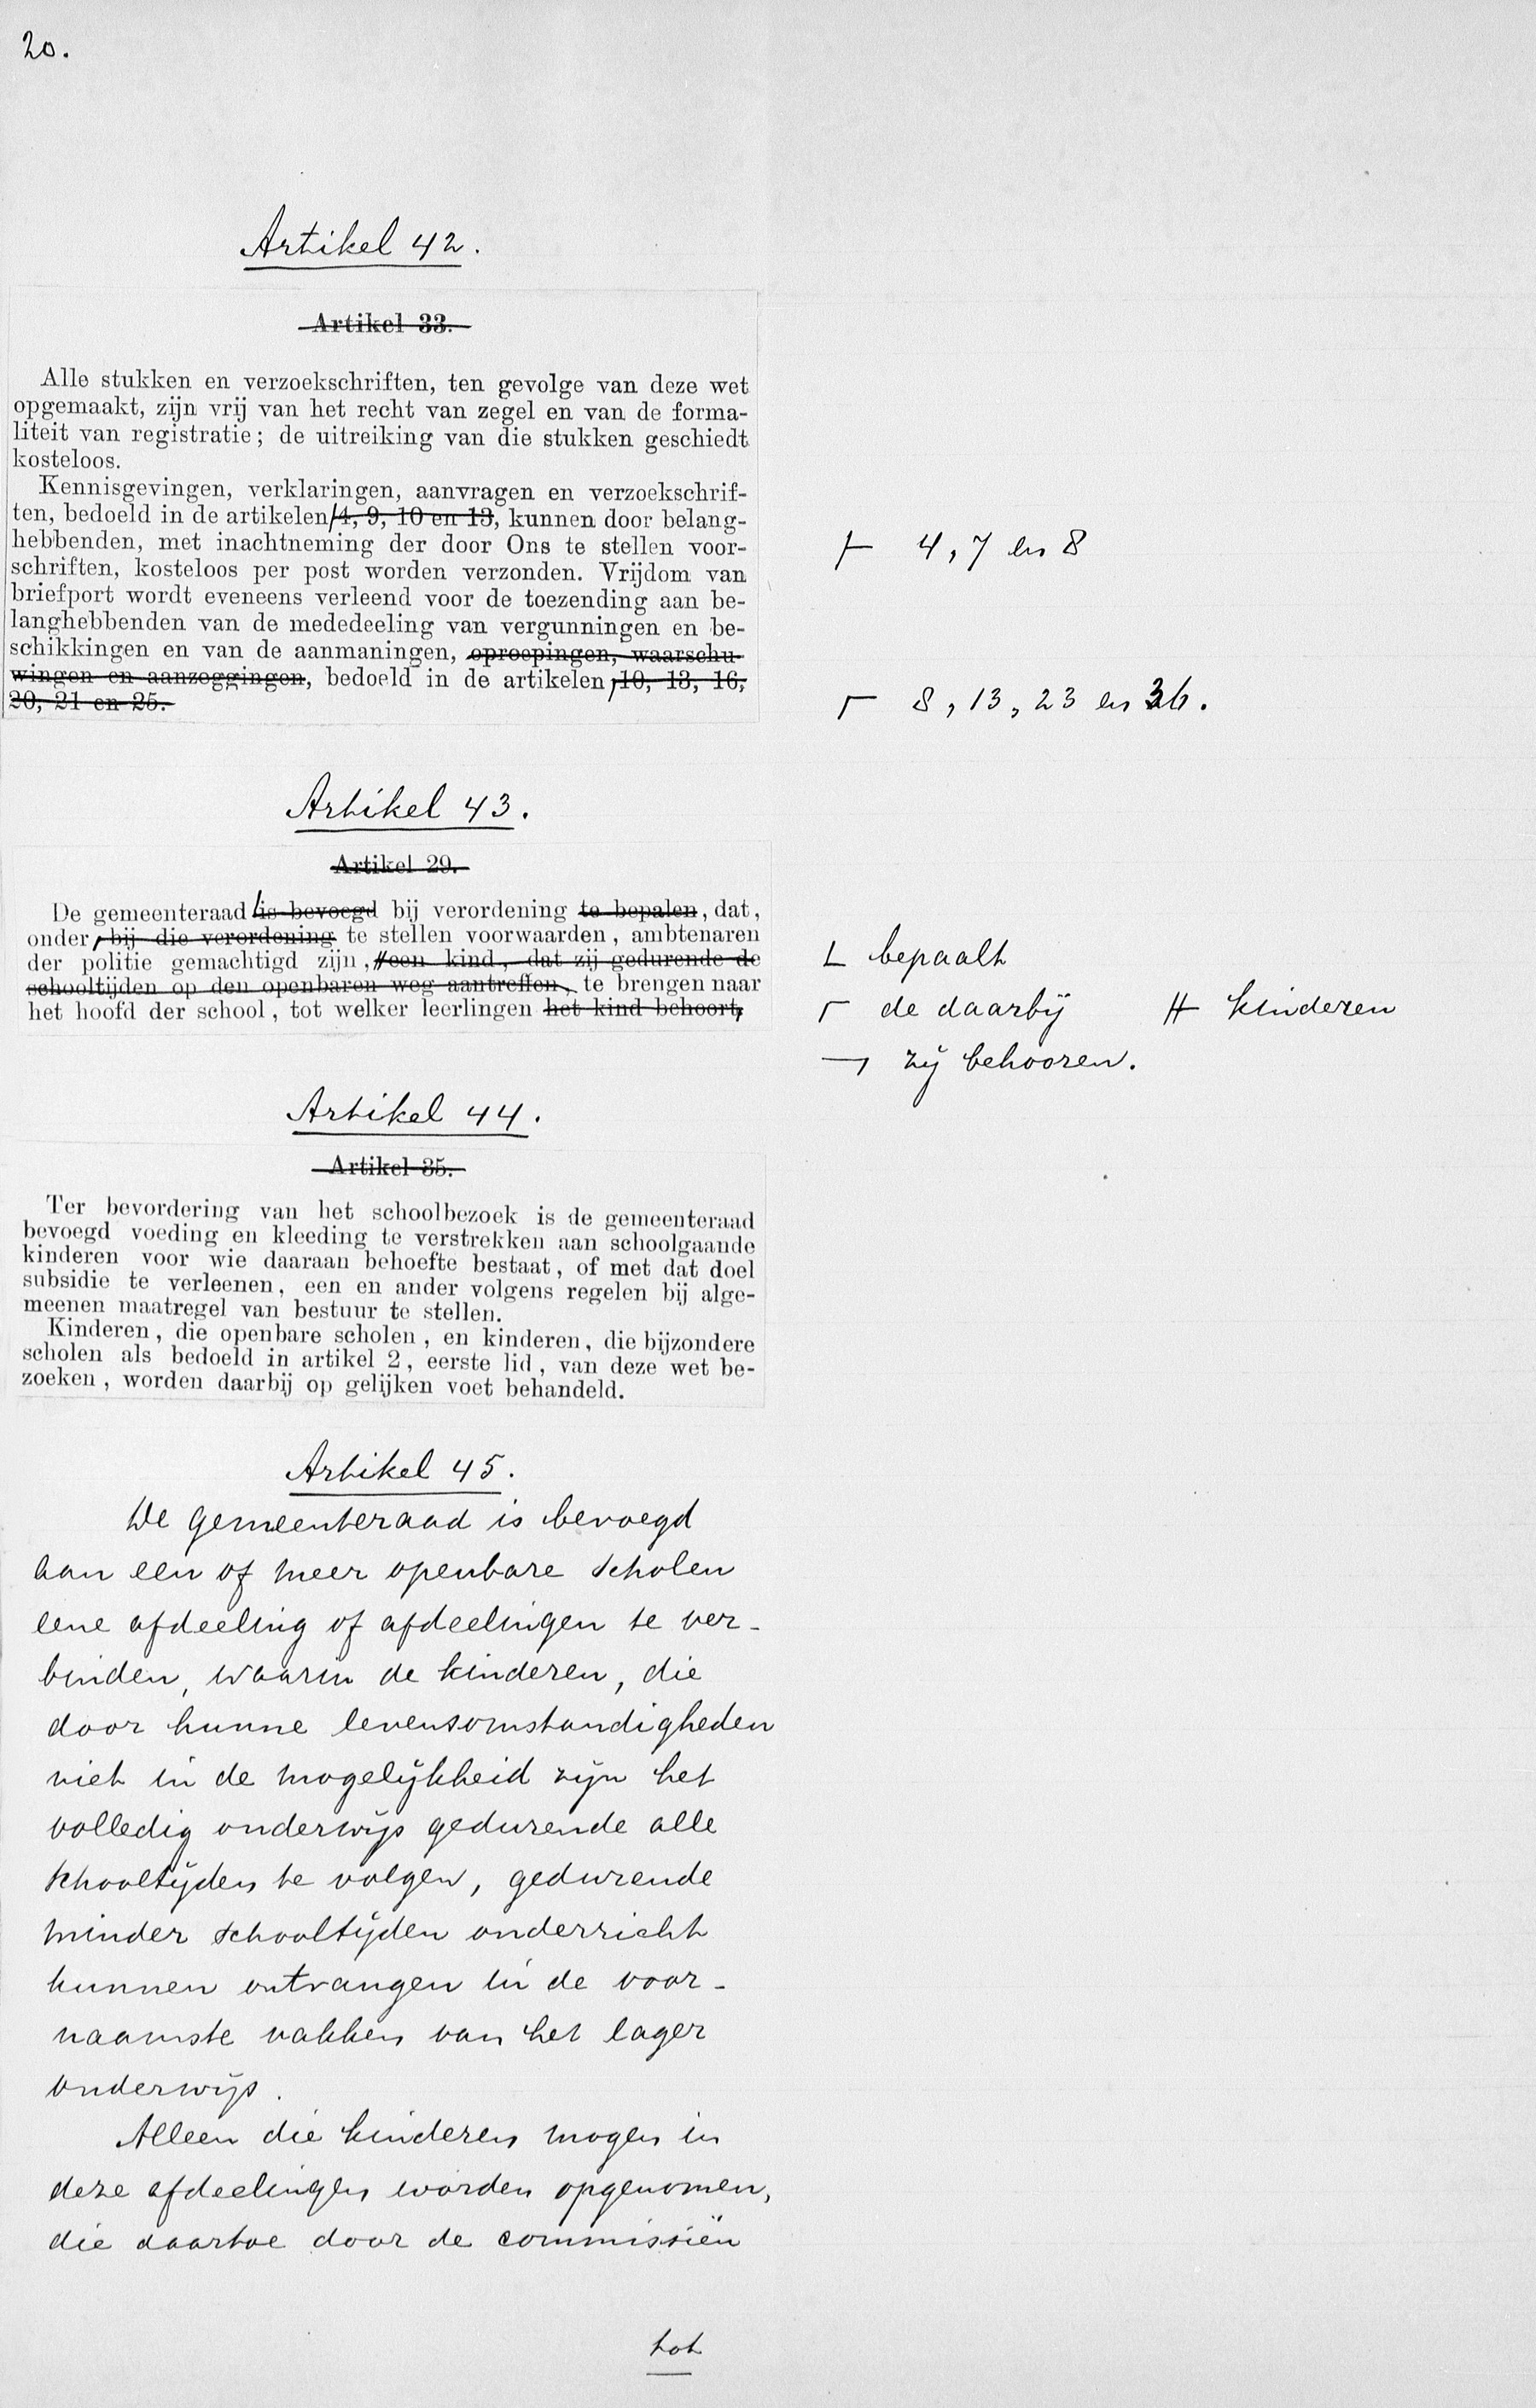 20.
Artikel 42.
Artikel 33.
Alle stukken en verzoekschriften, ten gevolge van deze wet
opgemaakt, zijn vrij van het recht van zegel en van de forma-
liteit van registratie; de uitreiking van die stukken geschiedt
kosteloos.
Kennisgevingen, verklaringen, aanvragen en verzoekschrif-
ten, bedoeld in de artikelen 4, 9, 10 en 13, kunnen door belang-
hebbenden, met inachtneming der door Ons te stellen voor-
schriften, kosteloos per post worden verzonden. Vrijdom van
briefport wordt eveneens verleend voor de toezending aan be-
langhebbenden van de mededeeling van vergunningen en be-
schikkingen en van de aanmaningen, oproepingen, waarschu-
wingen en aanzeggingen, bedoeld in de artikelen 10, 13, 16,
20, 21 en 25.
4, 7 en 8
8, 13, 23 en 36.
Artikel 43.
Artikel 29.
De gemeenteraad is bevoegd bij verordening te bepalen, dat,
onder bij die verordening te stellen voorwaarden, ambtenaren
der politie gemachtigd zijn, een kind, dat zij gedurende de
schooltijden op den openbaren weg aantreffen, te brengen naar
het hoofd der school, tot welker leerlingen het kind behoort,
bepaalt
de daarbij kinderen
zij behooren.
Artikel 44.
Artikel 35.
Ter bevordering van het schoolbezoek is de gemeenteraad
bevoegd voeding en kleeding te verstrekken aan schoolgaande
kinderen voor wie daaraan behoefte bestaat, of met dat doel
subsidie te verleenen, een en ander volgens regelen bij alge-
meenen maatregel van bestuur te stellen.
Kinderen, die openbare scholen, en kinderen, die bijzondere
scholen als bedoeld in artikel 2, eerste lid, van deze wet be-
zoeken, worden daarbij op gelijken voet behandeld.
Artikel 45.
De Gemeenteraad is bevoegd
aan een of meer openbare scholen
eene afdeeling of afdeelingen te ver-
binden, waarin de kinderen, die
door hunne levensomstandigheden
niet in de mogelijkheid zijn het
volledig onderwijs gedurende alle
schooltijden te volgen, gedurende
minder schooltijden onderricht
kunnen ontvangen in de voor-
naamste vakken van het lager
onderwijs.
Alleen die kinderen mogen in
deze afdeelingen worden opgenomen,
die daartoe door de commissiën
tot